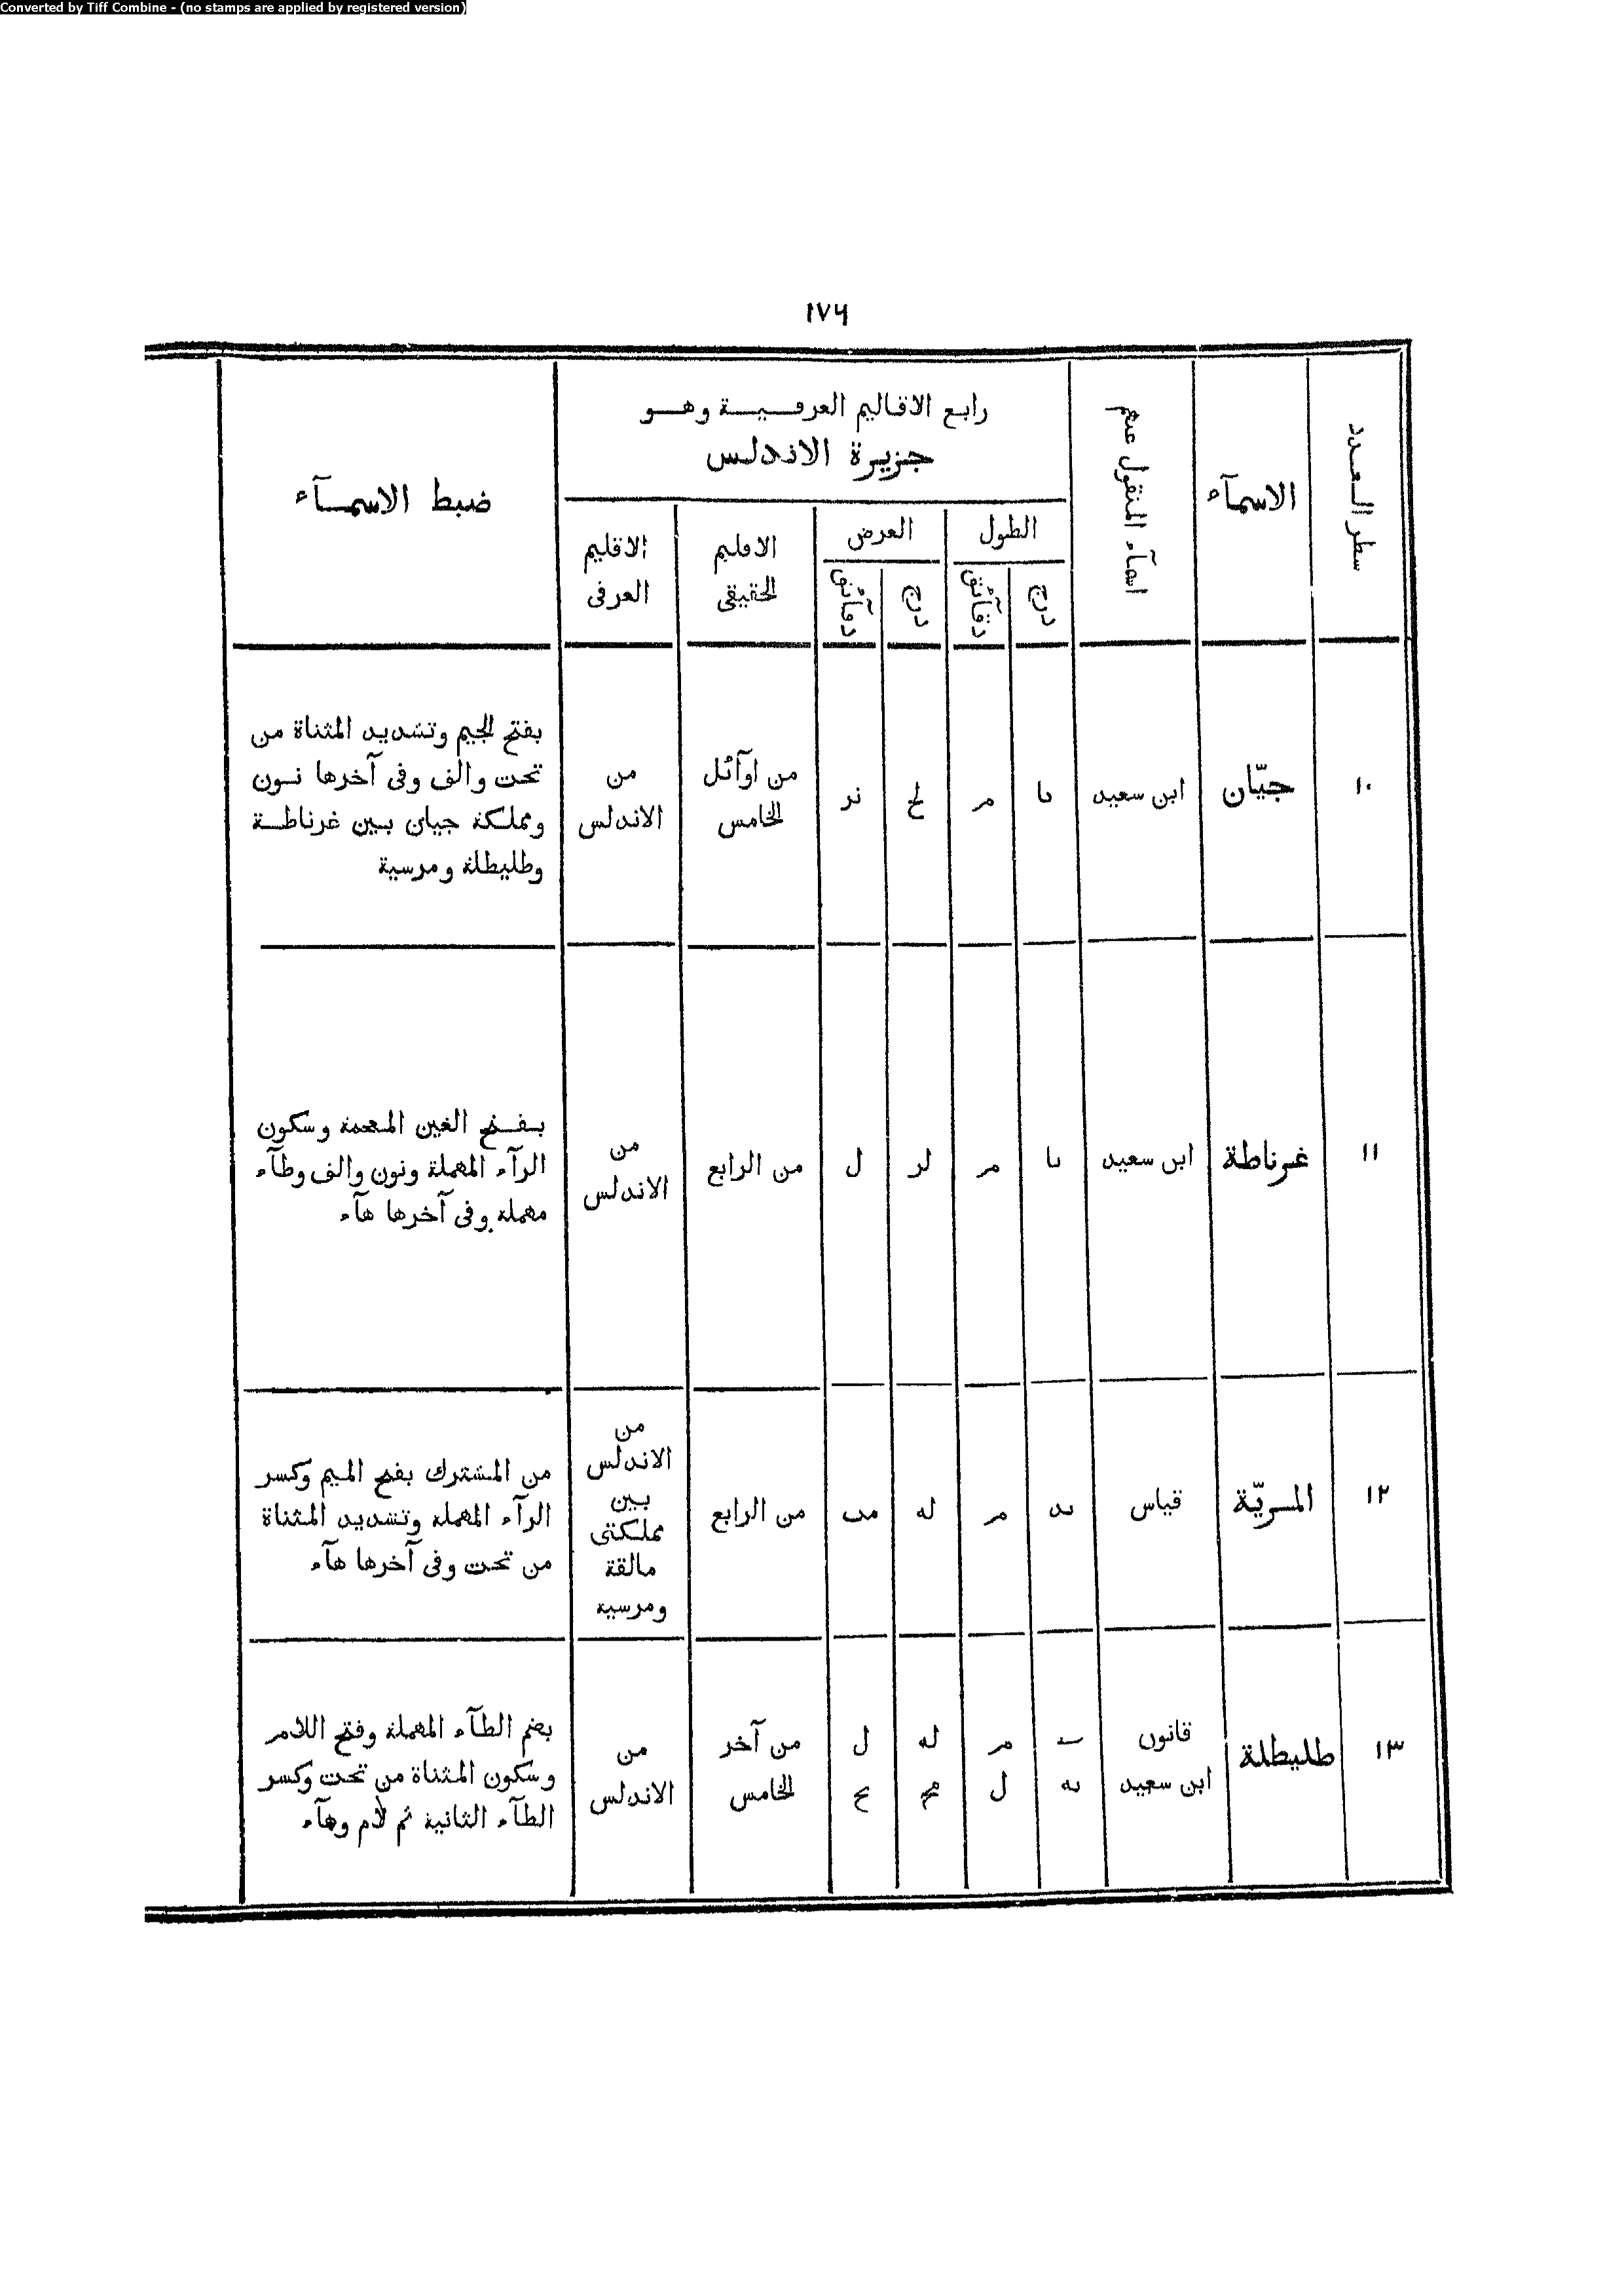 Converted by Tiff Combine - (no stamps are applied by registered version)
١٧٦
سطر العدد
الاسمآء
اسمآء المنقول عنهم
رابع الاقاليم العرفية وهو
جزيرة الاندلس
الطول
درج
دقآئق
العرض
درج
دقآئق
الاقليم
الحقيقى
الاقليم
العرفى
ضبط الاسمآء
١٠
جيّان
ابن سعيد
ىا
مر
لح
نر
من اوآئل
الخامس
من
الاندلس
بفتح الجيم وتشديد المثناة من
تحت والف وفى آخرها نون
ومملكة جيان بين غرناطة
وطليطلة ومرسية
١١
غرناطة
ابن سعيد
ىا
مر
لر
ل
من الرابع
من
الاندلس
بفتح الغين المعجمة وسكون
الرآء المهملة ونون والف وطآء
مهملة وفى آخرها هآء
١٢
المريّة
قياس
ىد
مر
له
مب
من الرابع
من
الاندلس
بين
مملكتى
مالقة
ومرسية
من المشترك بفتح الميم وكسر
الرآء المهملة وتشديد المثناة
من تحت وفى آخرها هآء
١٣
طليطلة
قانون
ابن سعيد
ىه
مر
ل
له
مح
ل
يح
من آخر
الخامس
من
الاندلس
بضم الطآء المهملة وفتح اللام
وسكون المثناة من تحت وكسر
الطآء الثانية ثم لام وهآء